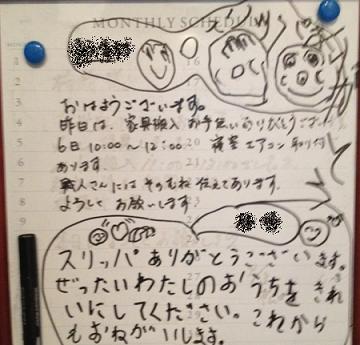 MONTHLY SCHEDULE
おはようございます。
昨日は、家具搬入 お手伝いありがとうございました
6日 10:00〜12:00 寝室エアコン取り付
あります。
職人さんには そのむね 伝えてあります。
よろしく お願いします。
スリッパ ありがとうございます。
ぜったいわたしのおうちをきれ
いにしてください。これから
もおねがいします。